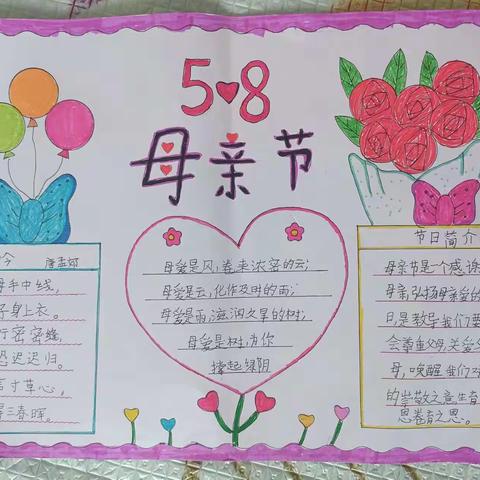 5 8
母亲节
唐孟郊
母手中线,
子身上衣。
行密密缝,
恐迟迟归。
言寸草心,
得三春晖。
母爱是风,卷来浓密的云;
母爱是云,化作及时的雨;
母爱是雨,滋润久旱的树;
母爱是树,为你
撑起绿阴
节日简介
母亲节是一个感谢
母亲,弘扬母亲爱的
日,是教导我们要
会尊重父母,关爱父
母,唤醒我们对
的崇敬之意生育
恩养育之恩。